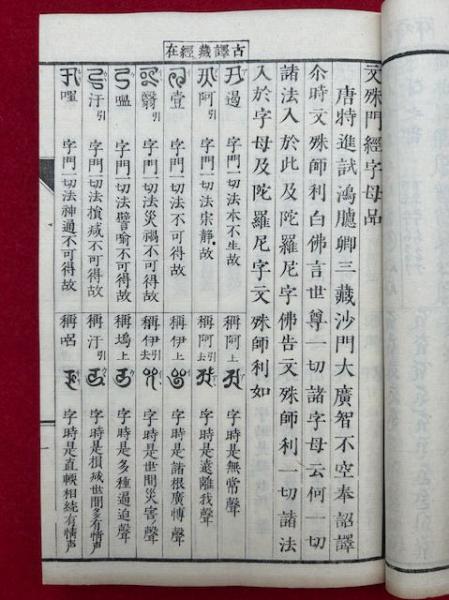 古譯藏經在
文殊問經字母品
唐特進試鴻臚卿三藏沙門大廣智不空奉詔譯
尒時文殊師利白佛言世尊一切諸字母云何一切
諸法入於此及陀羅尼字佛告文殊師利一切諸法
入於字母及陀羅尼字文殊師利如
遏 字門一切法本不生故 稱阿上 字時是無常聲
阿引 字門一切法寂靜故 稱阿引去 字時是遠離我聲
壹 字門一切法不可得故 稱伊上 字時是諸根廣博聲
翳引 字門一切法災禍不可得故 稱伊引去 字時是世間災害聲
嗢 字門一切法譬喻不可得故 稱塢上 字時是多種逼迫聲
汙引 字門一切法損減不可得故 稱汙引 字時是損減世間多有情声
字門一切法神通不可得故 稱 字時是直軟相續有情声